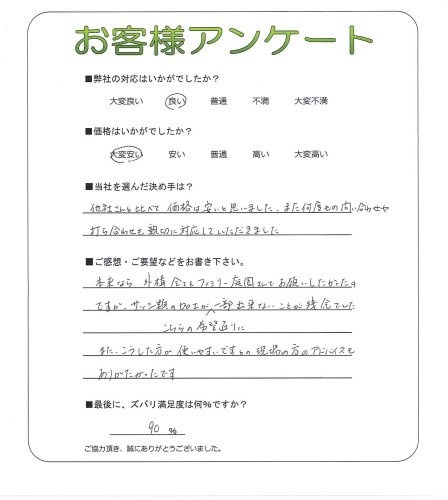 お客様アンケート
■弊社の対応はいかがでしたか？
大変良い 良い 普通 不満 大変不満
■価格はいかがでしたか？
大変安い 安い 普通 高い 大変高い
■当社を選んだ決め手は？
他社さんと比べて 価格は安いと思いました、また何度もの問い合わせや
打ち合わせも親切に対応していただきました
■ご感想・ご要望などをお書き下さい。
本来なら 外構全てをファミリー庭園さんでお願いしたかった
ですが、サッシ類の加工が 一部出来ないことが残念でした
こちらの希望通りに
また、こうした方が 使いやすいですよの 現場の方のアドバイスも
ありがたかったです
■最後に、ズバリ満足度は何%ですか？
90 %
ご協力頂き、誠にありがとうございました。